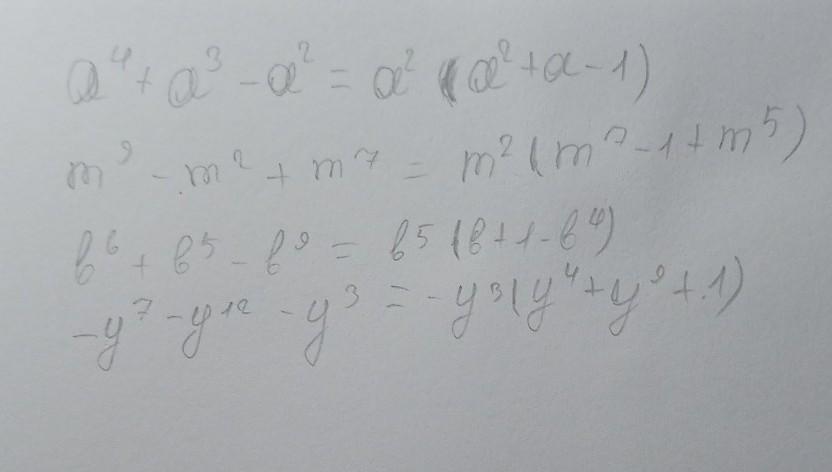 a⁴ + a³ - a² = a² (a² + a - 1)
m⁹ - m² + m⁷ = m² (m⁷ - 1 + m⁵)
b⁶ + b⁵ - b⁹ = b⁵ (b + 1 - b⁴)
-y⁷ - y¹² - y³ = -y³ (y⁴ + y⁹ + 1)